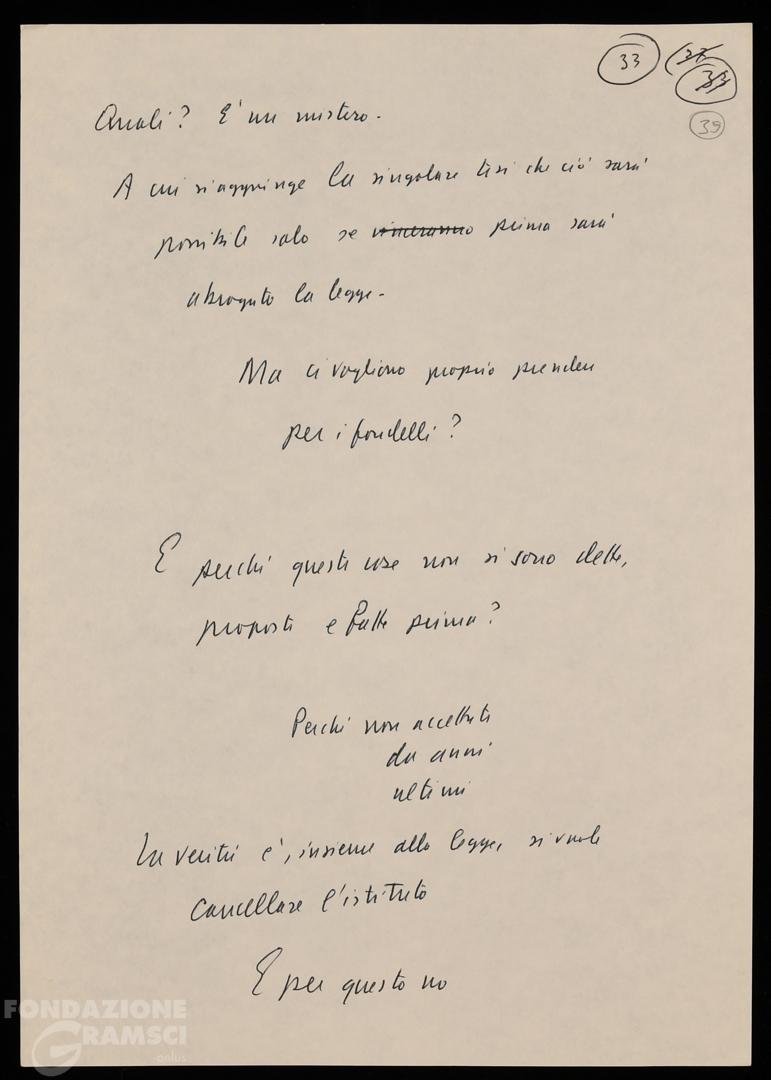 33
37
33
39
Quali? E' un mistero.
A cui si aggiunge la singolare tesi che ciò sarà
possibile solo se vinceranno prima sarà
abrogata la legge.
Ma ci vogliono proprio prendere
per i fondelli?
E perché queste cose non si sono dette,
proposte e fatte prima?
Perché non accettate
da anni
ultimi
La verità è, insieme alla legge, si vuole
cancellare l'istituto
E per questo no
FONDAZIONE
GRAMSCI
onlus